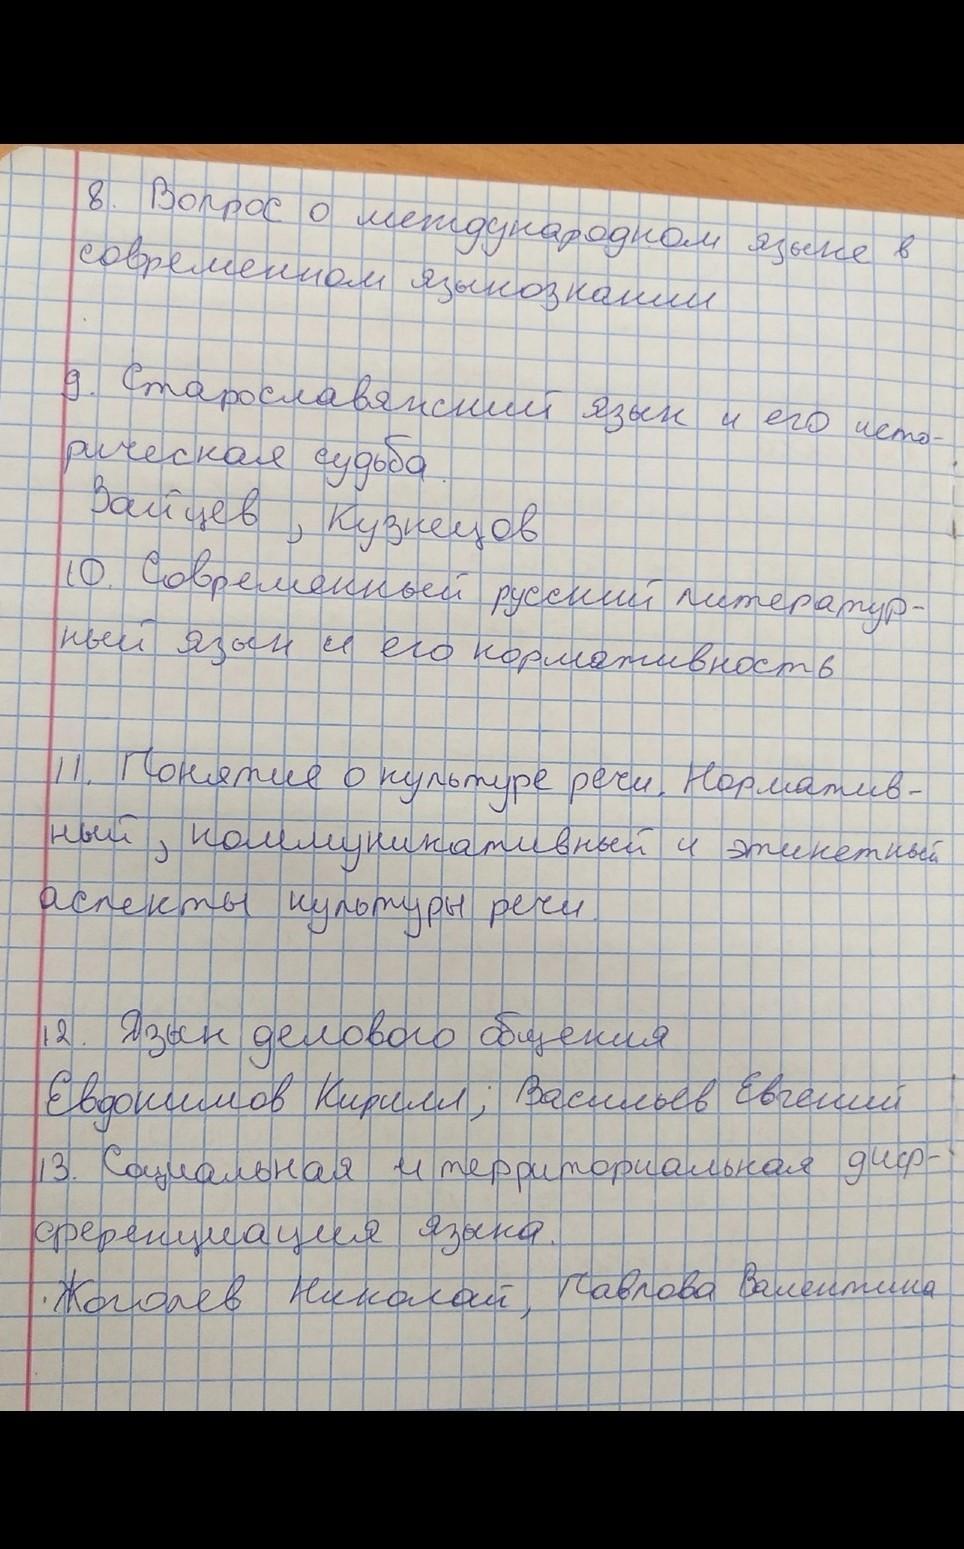 8. Вопрос о международном языке в
современном языкознании
9. Старославянский язык и его исто-
рическая судьба.
Зайцев, Кузнецов
10. Современный русский литератур-
ный язык и его нормативность
11. Понятие о культуре речи. Норматив-
ный, коммуникативный и этикетный
аспекты культуры речи
12. Язык делового общения
Евдокимов Кирилл; Васильев Евгений
13. Социальная и территориальная диф-
ференциация языка.
Николай, Павлова Валентина